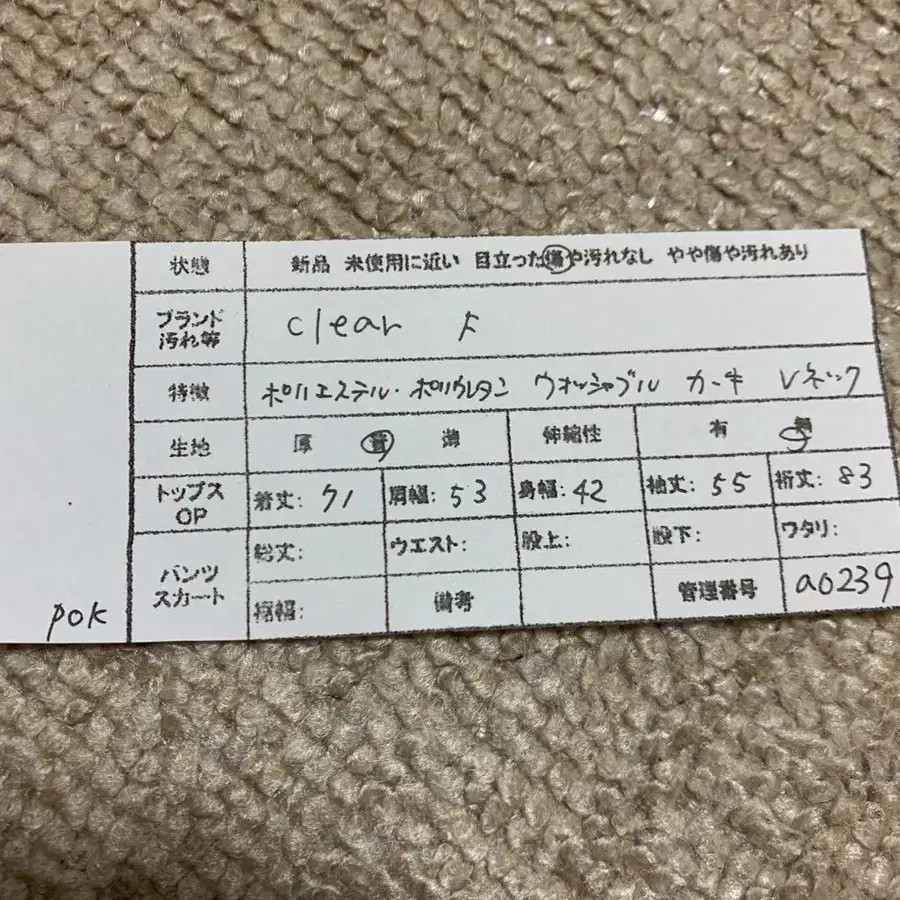 状態 新品 未使用に近い 目立った傷や汚れなし やや傷や汚れあり
ブランド 汚れ等 clear F
特徴 ポリエステル・ポリウレタン ウォッシャブル カーキ Vネック
生地 厚 普 薄 伸縮性 有 無
トップス OP 着丈: 71 肩幅: 53 身幅: 42 袖丈: 55 裄丈: 83
パンツ スカート 総丈: ウエスト: 股上: 股下: ワタリ:
裾幅: 備考 管理番号 a0239
pok